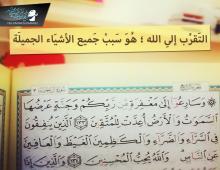 التقرب إلي الله ؛ هو سبب جميع الأشياء الجميلة
وَسَارِعُوا إِلَىٰ مَغْفِرَةٍ مِّن رَّبِّكُمْ وَجَنَّةٍ عَرْضُهَا
السَّمَاوَاتُ وَالْأَرْضُ أُعِدَّتْ لِلْمُتَّقِينَ ١٣٣ الَّذِينَ يُنفِقُونَ
فِي السَّرَّاءِ وَالضَّرَّاءِ وَالْكَاظِمِينَ الْغَيْظَ وَالْعَافِينَ
عَنِ النَّاسِ وَاللَّهُ يُحِبُّ الْمُحْسِنِينَ ١٣٤